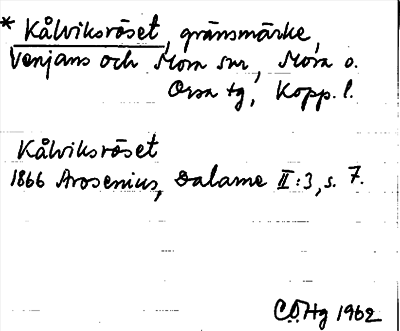 * Kålviksröset, gränsmärke,
Venjans och Mora snr, Mora o.
Orsa tg, Kopp. l.
Kålviksröset
1866 Arosenius, Dalarne II:3, s. 7.
C.Ö.Hg 1962